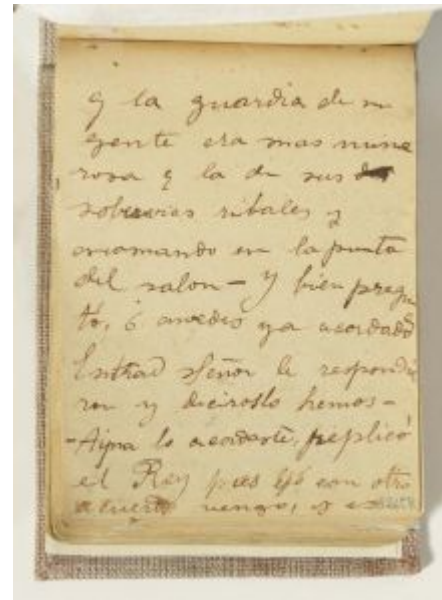 q la guardia de su
gente era mas nume
rosa q la de sus
sobervios ribales y
en la punta
del salon - y bien pregun
tó, ó avedes ya acordado
Entrad Señor le respondie
ron y decirosllo hemos -
- lo acordaste, replicó
el Rey pues yo con otro
acuerdo vengo, y